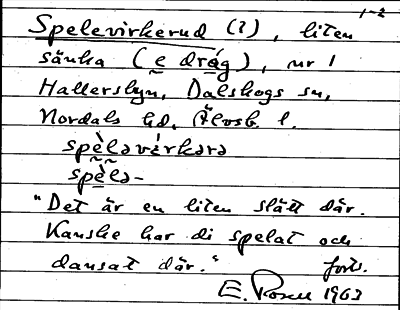 1-2
Spelevirkerud (?), liten
sänka (e dråg), nr 1
Hallersbyn, Dalskogs sn,
Nordals hd, Älvsb. l.
spèləvìrkərə
spèlə-
"Det är en liten slätt där.
Kanske har di spelat och
dansat där."
forts.
E. Rosell 1963